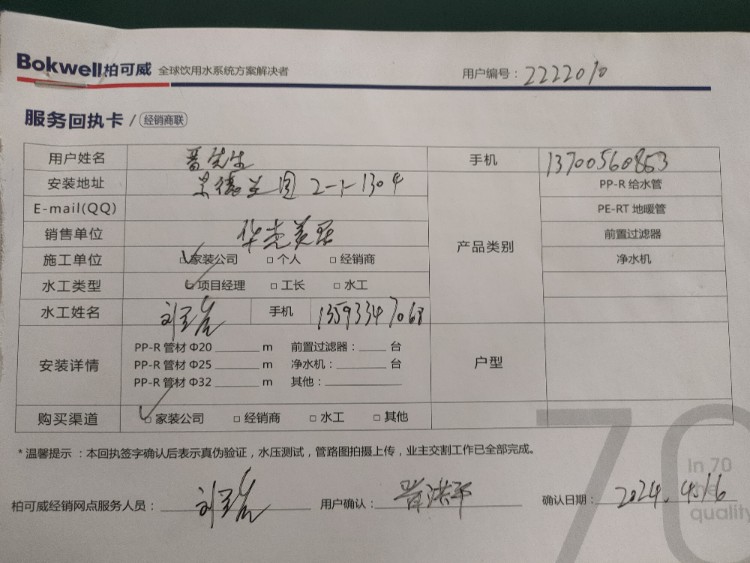 Bokwell柏可威 全球饮用水系统方案解决者 用户编号：2222010
服务回执卡 / 经销商联
用户姓名 晋先生 手机 13700560853
安装地址 2-1-1304 PP-R 给水管
E-mail(QQ) PE-RT 地暖管
销售单位 产品类别 前置过滤器
施工单位 □家装公司 □个人 □经销商 净水机
水工类型 □项目经理 □工长 □水工
水工姓名 手机 13593347068
安装详情 户型
PP-R 管材 Φ20 ______ m 前置过滤器：____ 台
PP-R 管材 Φ25 ______ m 净水机：____ 台
PP-R 管材 Φ32 ______ m 其他：______
购买渠道 □家装公司 □经销商 □水工 □其他
*温馨提示：本回执签字确认后表示真伪验证，水压测试，管路图拍摄上传，业主交割工作已全部完成。
柏可威经销网点服务人员： 用户确认： 确认日期：2024.4.16
70
In 70
the
quality